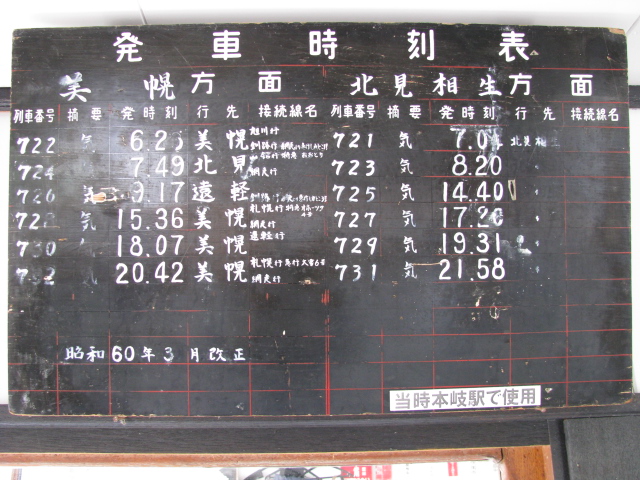 発車時刻表
美幌方面 北見相生方面
列車番号 摘要 発時刻 行先 接続線名 列車番号 摘要 発時刻 行先 接続線名
722 気 美幌 旭川行 721 気 北見相生
724 7.49 北見 網走行 723 気 8.20 〃
726 気 9.17 遠軽 725 気 14.40 〃
気 15.36 美幌 札幌行 網走行 727 気 17.26 〃
730 18.07 美幌 遠軽行 729 気 19.31 〃
732 20.42 美幌 札幌行 網走行 731 気 21.58 〃
昭和60年3月改正
当時本岐駅で使用